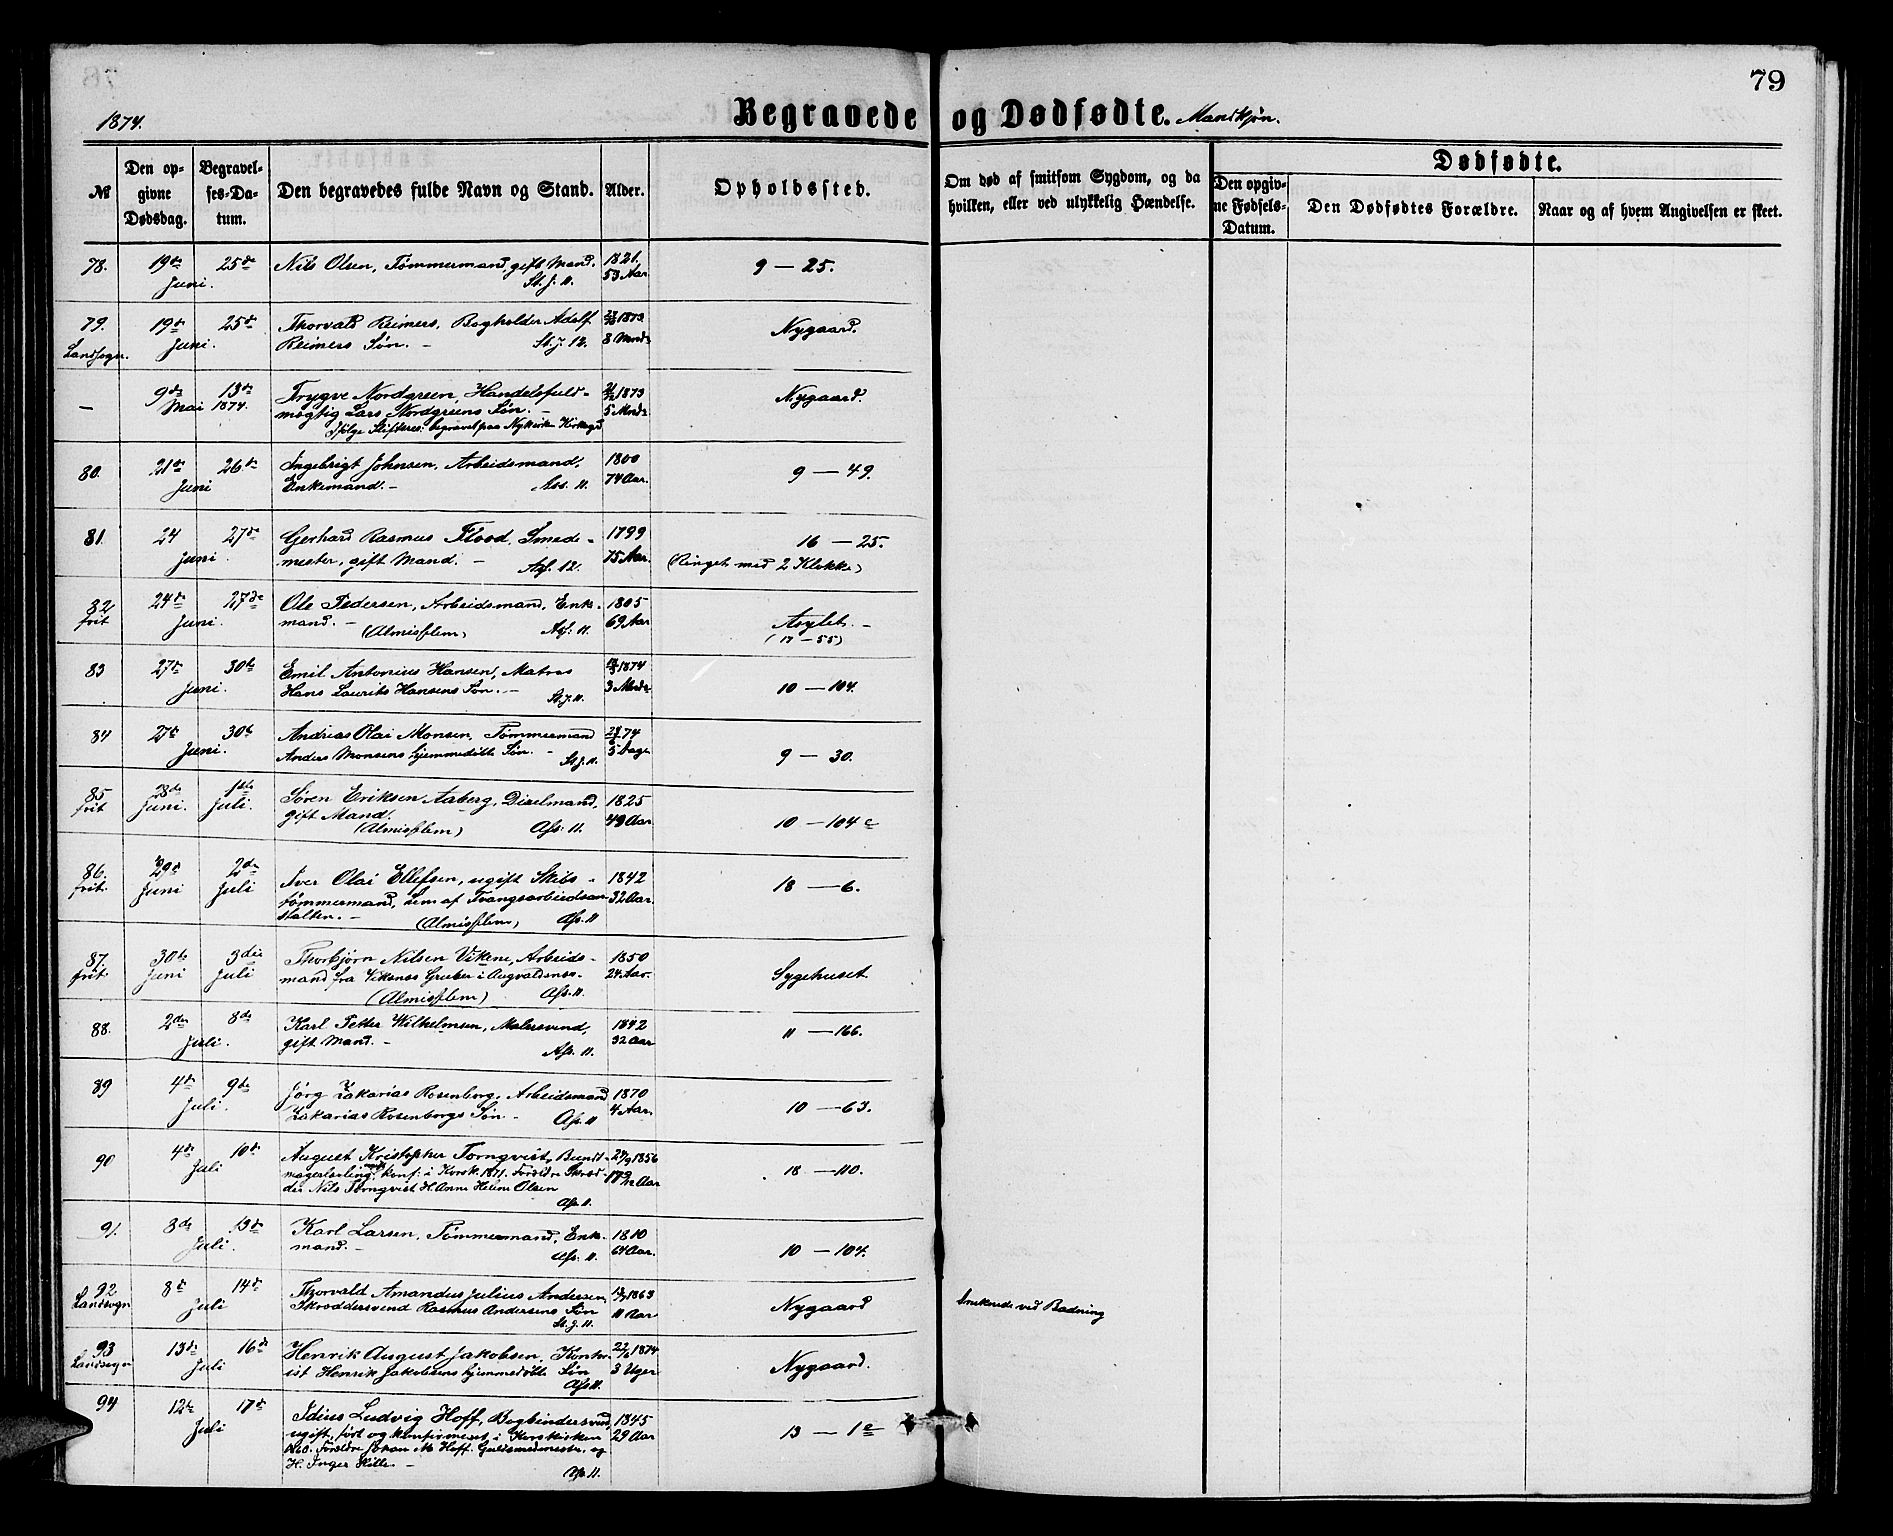 79
1874.
Begravede og Dødfødte. Mandkjøn.
№
Den opgivne Dødsdag.
Begravelses-Datum.
Den begravedes fulde Navn og Stand.
Alder.
Opholdssted.
Om død af smitsom Sygdom, og da hvilken, eller ved ulykkelig Hændelse.
Dødfødte.
Den opgivne Fødsels-Datum.
Den Dødfødtes Forældre.
Naar og af hvem Angivelsen er skeet.
78. 19de 25de Nils Olsen, Tømmermand, gift Mand. 1821. 9 — 25.
Juni. St. J. 11. 53 Aar
79. 19de 25de Thorvald Reimers, Bogholder Adolf 1873 Nygaard.
Landsogn. Juni. Reimers Søn. — St. J. 12. 8 Mndr
— 9de 13de Trygve Nordgreen, Handelsfuld- 1873 Nygaard.
Mai 1874. mægtig Lars Nordgreens Søn. — 5 Mndr
Ifølge begravet paa Nykirke Kirkegd
80. 21de 26de Ingebrigt Johnsen, Arbeidsmand, 1800 9 — 49.
Juni Enkemand. — Ass. 11. 74 Aar.
81. 24 27de Gerhard Rasmus Flood, Smede- 1799 16 — 25.
Juni. mester, gift Mand. — Asf. 12. 75 Aar. (Ringet med 2 Klokke)
82 24de 27de Ole Pedersen, Arbeidsmand, Enke- 1805 Asylet. —
frit Juni. mand. — (Almisselem) Asf. 11. 69 Aar (17 — 55)
83 27de 30te Emil Antonius Hansen, Matros 1874
Juni. Hans Laurits Hansens Søn. — St. J. 11. 3 Mndr 10 — 104.
84 27de 30te Andreas Olai Monsen, Tømmermand 74
Juni. Anders Monsens hjemmedøbte Søn. — St. J. 11. 5 Dage 9 — 30.
85 28de 1ste Søren Eriksen Aaberg, Dixelmand, 1825
frit Juni. Juli. gift Mand. (Almisselem) Afs. 11. 49 Aar. 10 — 104 c
86. 29de 2den Iver Olai Ellefsen, ugift Skibs- 1842 18 — 6.
frit. Juni Juli tømmermand, Lem af Tvangsarbeidsan- 32 Aar.
stalten. — (Almisselem) Afs. 11
87. 30te 3die Thorbjørn Nilsen Vikene, Arbeids- 1850
frit. Juni Juli mand fra Viksnes Gruber i Augvaldsnes. 24 Aar. Sygehuset.
(Almisselem) Afs. 11.
88. 2den 8de Karl Petter Wilhelmsen, Malersvend, 1842 11 — 166.
Juli. gift Mand. — Afs. 11. 32 Aar
89 4de 9de Jørg Zakarias Rosenberg, Arbeidsmand 1870
Juli. Zakarias Rosenbergs Søn — Afs. 11 4 Aar. 10 — 63.
90 4de 10de August Kristopher Tornqvist, Bundt- 1856
Juli magerlærling, konf. i Korsk. 1871. Forældre Skræd- Aar 18 — 110.
der Nils Tornqvist H. Anne Helene Olsen
Afs. 11.
91. 8de 13de Karl Larsen, Tømmermand, Enke- 1810
Juli. mand. — Afs. 11. 64 Aar. 10 — 104.
92 8de 14de Thorvald Amandus Julius Andersen, 1863
Landsogn Juli Skræddersvend Rasmus Andersens Søn 11 Aar Nygaard druknede ved Badning
St. J. 11.
93 13de 16de Henrik August Jakobsen, Kontor- 1874
Landsogn Juli ist Henrik Jakobsens hjemmedøbte Søn 3 Uger Nygaard.
Afs 11.
94 12te 17de Idius Ludvig Hoff, Bogbindersvend, 1845
Juli ugift, født og konfirmeret i Korskirken 29 Aar 13 — 1 c
Forældre Johan M. Hoff. Guldsmedmester, og
H. Inger Hille. — Afs. 11.